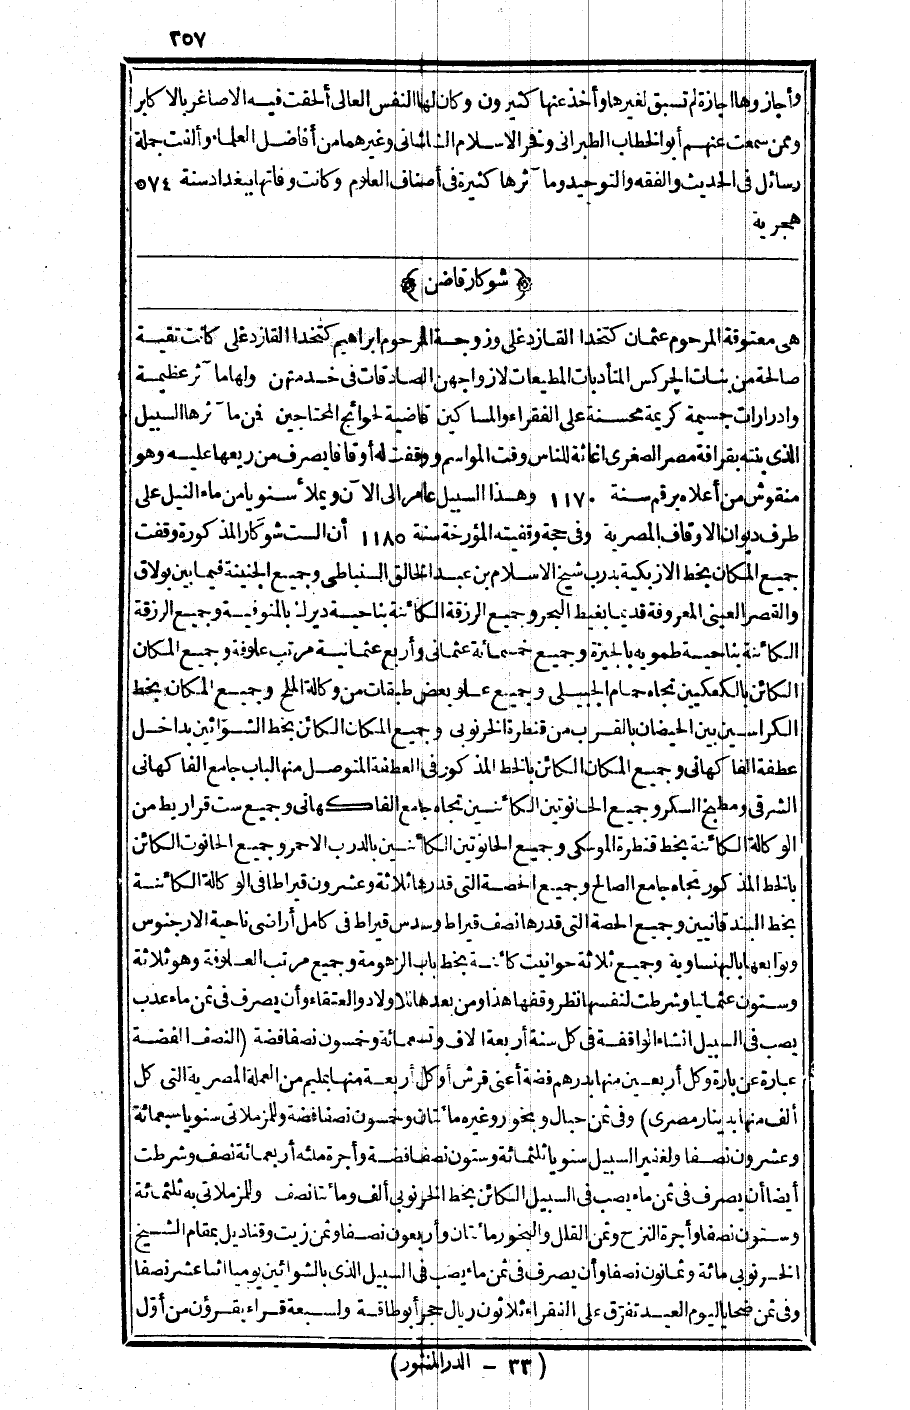 ٢٥٧
وأجازوها اجازة لم تسبق لغيرها وأخذ عنها كثيرون وكان لها النفس العالى ألحقت فيه الاصاغر بالاكابر
وممن سمعت عنهم أبو الخطاب الطبرانى وفخر الاسلام الشاشانى وغيرهما من أفاضل العلماء وألفت جملة
رسائل فى الحديث والفقه والتوحيد ومآثرها كثيرة فى أصناف العلوم وكانت وفاتها ببغداد سنة ٥٧٤
هجرية
﴿ شوكار قاضن ﴾
هى معتوقة المرحوم عثمان كتخدا القازدغلى وزوجة المرحوم ابراهيم كتخدا القازدغلى كانت تقية
صالحة من بنات الجركس المتأدبات المطيعات لازواجهن الصادقات فى خدمتهن ولها مآثر عظيمة
وادرارات جسيمة كريمة محسنة على الفقراء والمساكين قاضية لحوائج المحتاجين فمن مآثرها السبيل
الذى بنته بقرافة مصر الصغرى اغاثة للناس وقت المواسم ووقفت له أوقافا يصرف من ريعها عليه وهو
منقوش من أعلاه برقم سنة ١١٧٠ وهذا السبيل عامر الى الآن ويملأ سنويا من ماء النيل على
طرف ديوان الاوقاف المصرية وفى حجة وقفيته المؤرخة سنة ١١٨٥ أن الست شوكار المذكورة وقفت
جميع المكان بخط الازبكية بدرب شيخ الاسلام بن عبد الخالق السنباطى وجميع الجنينة فيما بين بولاق
والقصر العينى المعروفة قديما بغيط البحر وجميع الرزقة الكائنة بناحية ديرك بالمنوفية وجميع الرزقة
الكائنة بناحية طمويه بالجيزة وجميع خمسمائة عثمانى وأربع عثمانية مرتب علوفة وجميع المكان
الكائن بالكعكيين تجاه حمام الجبيلى وجميع علو بعض طبقات من وكالة الملح وجميع المكان بخط
الكراسيين بين الحيضان بالقرب من قنطرة الخرنوبى وجميع المكان الكائن بخط الشوائين بداخل
عطفة الفاكهانى وجميع المكان الكائن بالخط المذكور فى العطفة المتوصل منها الباب جامع الفاكهانى
الشرقى ومطبخ السكر وجميع الحانوتين الكائنين تجاه جامع الفاكهانى وجميع ست قراريط من
الوكالة الكائنة بخط قنطرة الموسكى وجميع الحانوتين الكائنين بالدرب الاحمر وجميع الحانوت الكائن
بالخط المذكور تجاه جامع الصالح وجميع الحصة التى قدرها ثلاثة وعشرون قيراطا فى الوكالة الكائنة
بخط البندقانيين وجميع الحصة التى قدرها نصف قيراط وسدس قيراط فى كامل أراضى ناحية الارجنوس
وتوابعها بالبهنساوية وجميع ثلاثة حوانيت كائنة بخط باب الزهومة وجميع مرتب العلوفة وهو ثلاثة
وستون عثمانيا وشرطت لنفسها نظر وقفها هذا ومن بعدها للاولاد والعتقاء وأن يصرف فى ثمن ماء عذب
يصب فى السبيل انشاء الواقفة فى كل سنة أربعة الاف وتسعمائة وخمسون نصفا فضة (النصف الفضة
عبارة عن بارة وكل أربعين منها بدرهم فضة أعنى قرش أو كل أربعة منها بمليم من العملة المصرية التى كل
ألف منها بدينار مصرى) وفى ثمن حبال وبخور وغيره مائتان وخمسون نصفا فضة وللمزملاتى سنويا سبعمائة
وعشرون نصفا ولغفير السبيل سنويا ثلثمائة وستون نصفا فضة وأجرة ملئه أربعمائة نصف وشرطت
أيضا أن يصرف فى ثمن ماء يصب فى السبيل الكائن بخط الخرنوبى ألف ومائتا نصف وللمزملاتى به ثلثمائة
وستون نصفا وأجرة النزح وثمن القلل والبخور مائتان وأربعون نصفا وثمن زيت وقناديل بمقام الشيخ
الخرنوبى مائة وثمانون نصفا وأن يصرف فى ثمن ماء يصب فى السبيل الذى بالشوائين يوميا اثنا عشر نصفا
وفى ثمن ضحايا ليوم العيد تفرق على الفقراء ثلاثون ريال حجر أبو طاقة ولسبعة قراء يقرؤن من أول
(٣٣ - الدر المنثور)